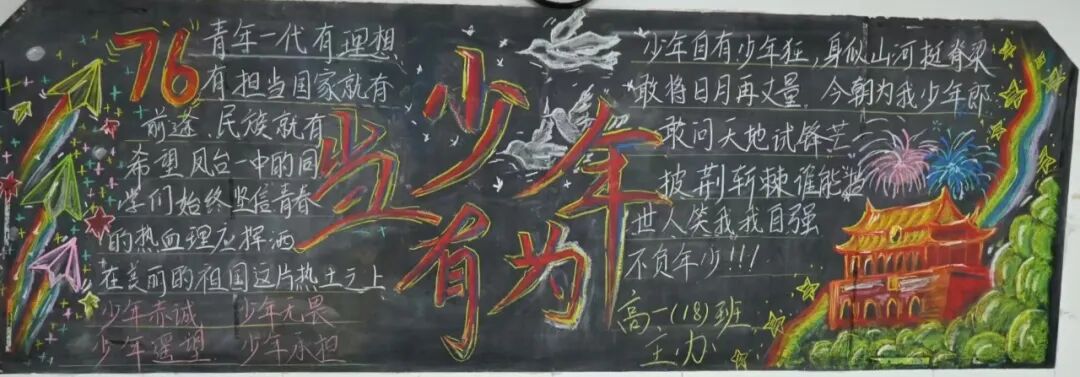 76
青年一代有理想、
有担当国家就有
前途、民族就有
希望凤台一中的同
学们始终坚信青春
的热血理应挥洒
在美丽的祖国这片热土之上
少年赤诚 少年无畏
少年遥望 少年承担
少年
当有为
少年自有少年狂,身似山河挺脊梁
敢将日月再丈量 今朝为我少年郎
敢问天地试锋芒
披荆斩棘谁能挡
世人笑我我自强
不负年少!!!
高一(18)班